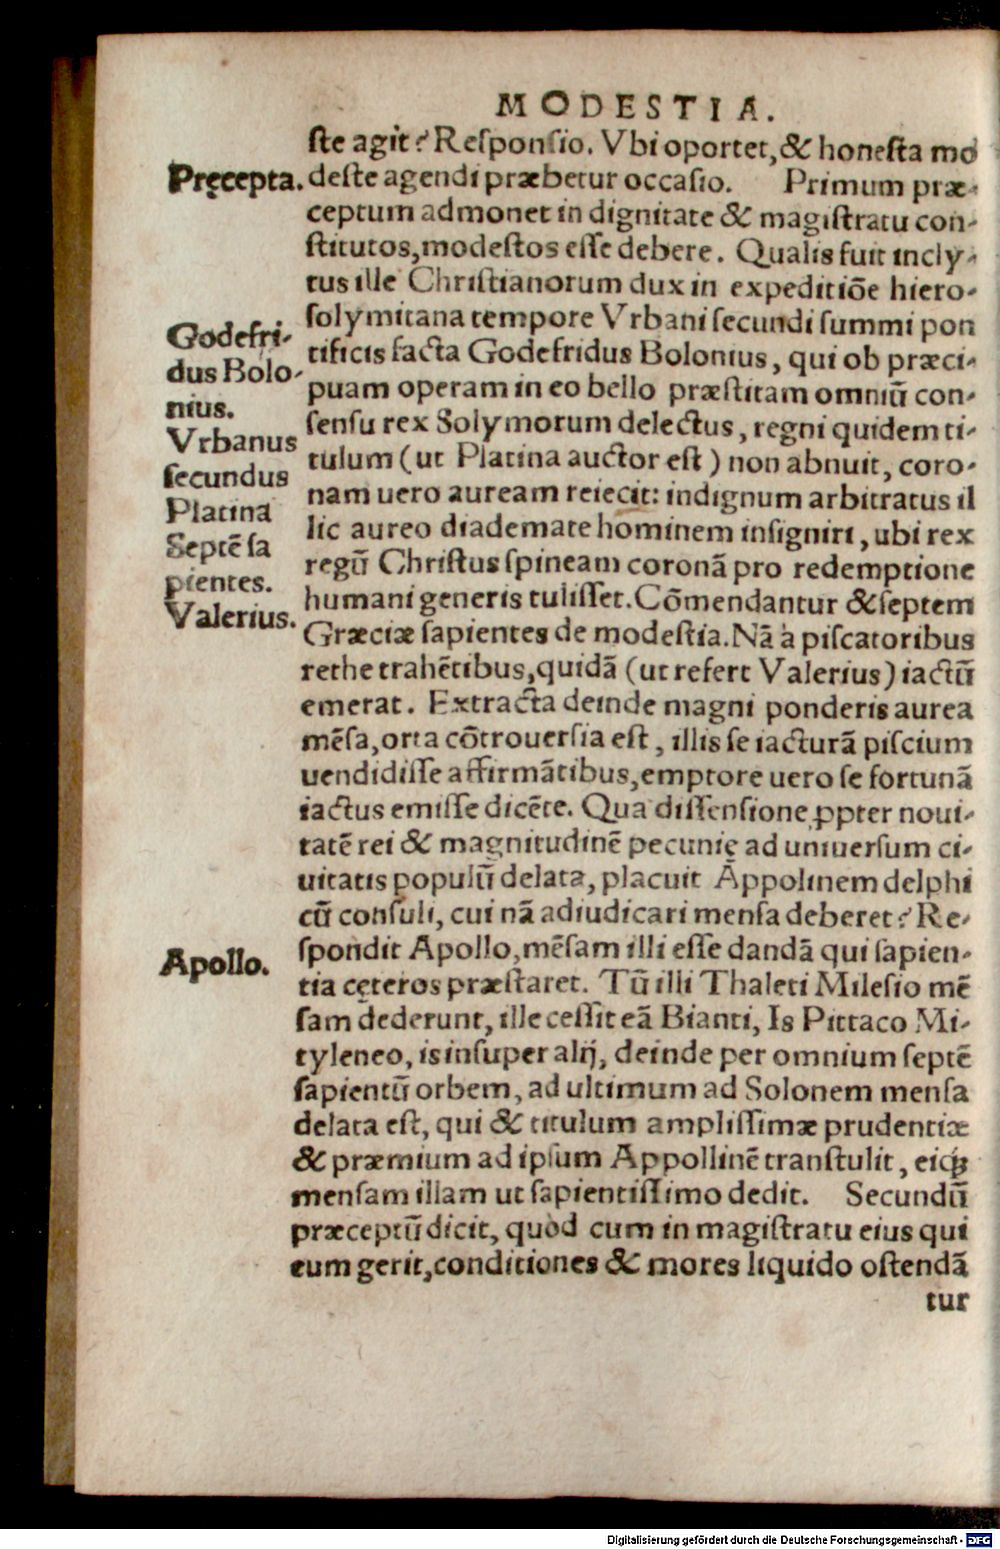 MODESTIA.
ste agit? Responsio. Vbi oportet, & honesta mo
Pręcepta. deste agendi præbetur occasio. Primum præ-
ceptum admonet in dignitate & magistratu con-
stitutos, modestos esse debere. Qualis fuit incly-
tus ille Christianorum dux in expeditiõe hiero-
solymitana tempore Vrbani secundi summi pon
tificis facta Godefridus Bolonius, qui ob præci-
puam operam in eo bello præstitam omniũ con-
sensu rex Solymorum delectus, regni quidem ti-
tulum (ut Platina auctor est) non abnuit, coro-
nam uero auream reiecit: indignum arbitratus il
lic aureo diademate hominem insigniri, ubi rex
regũ Christus spineam coronã pro redemptione
humani generis tulisset. Cõmendantur & septem
Græciæ sapientes de modestia. Nã à piscatoribus
rethe trahẽtibus, quidã (ut refert Valerius) iactũ
emerat. Extracta deinde magni ponderis aurea
mẽsa, orta cõtrouersia est, illis se iacturã piscium
uendidisse affirmãtibus, emptore uero se fortunã
iactus emisse dicẽte. Qua dissensione ꝓpter noui-
tatẽ rei & magnitudinẽ pecunię ad uniuersum ci-
uitatis populũ delata, placuit Appolinem delphi
cũ consuli, cui nã adiudicari mensa deberet? Re-
spondit Apollo, mẽsam illi esse dandã qui sapien-
tia cęteros præstaret. Tũ illi Thaleti Milesio mẽ
sam dederunt, ille cessit eã Bianti, Is Pittaco Mi-
tyleneo, is insuper alij, deinde per omnium septẽ
sapientũ orbem, ad ultimum ad Solonem mensa
delata est, qui & titulum amplissimæ prudentiæ
& præmium ad ipsum Appollinẽ transtulit, eiqꝫ
mensam illam ut sapientissimo dedit. Secundũ
præceptũ dicit, quòd cum in magistratu eius qui
eum gerit, conditiones & mores liquido ostendã
tur
Godefri-
dus Bolo-
nius.
Vrbanus
secundus
Platina
Septẽ sa
pientes.
Valerius.
Apollo.
Digitalisierung gefördert durch die Deutsche Forschungsgemeinschaft - DFG